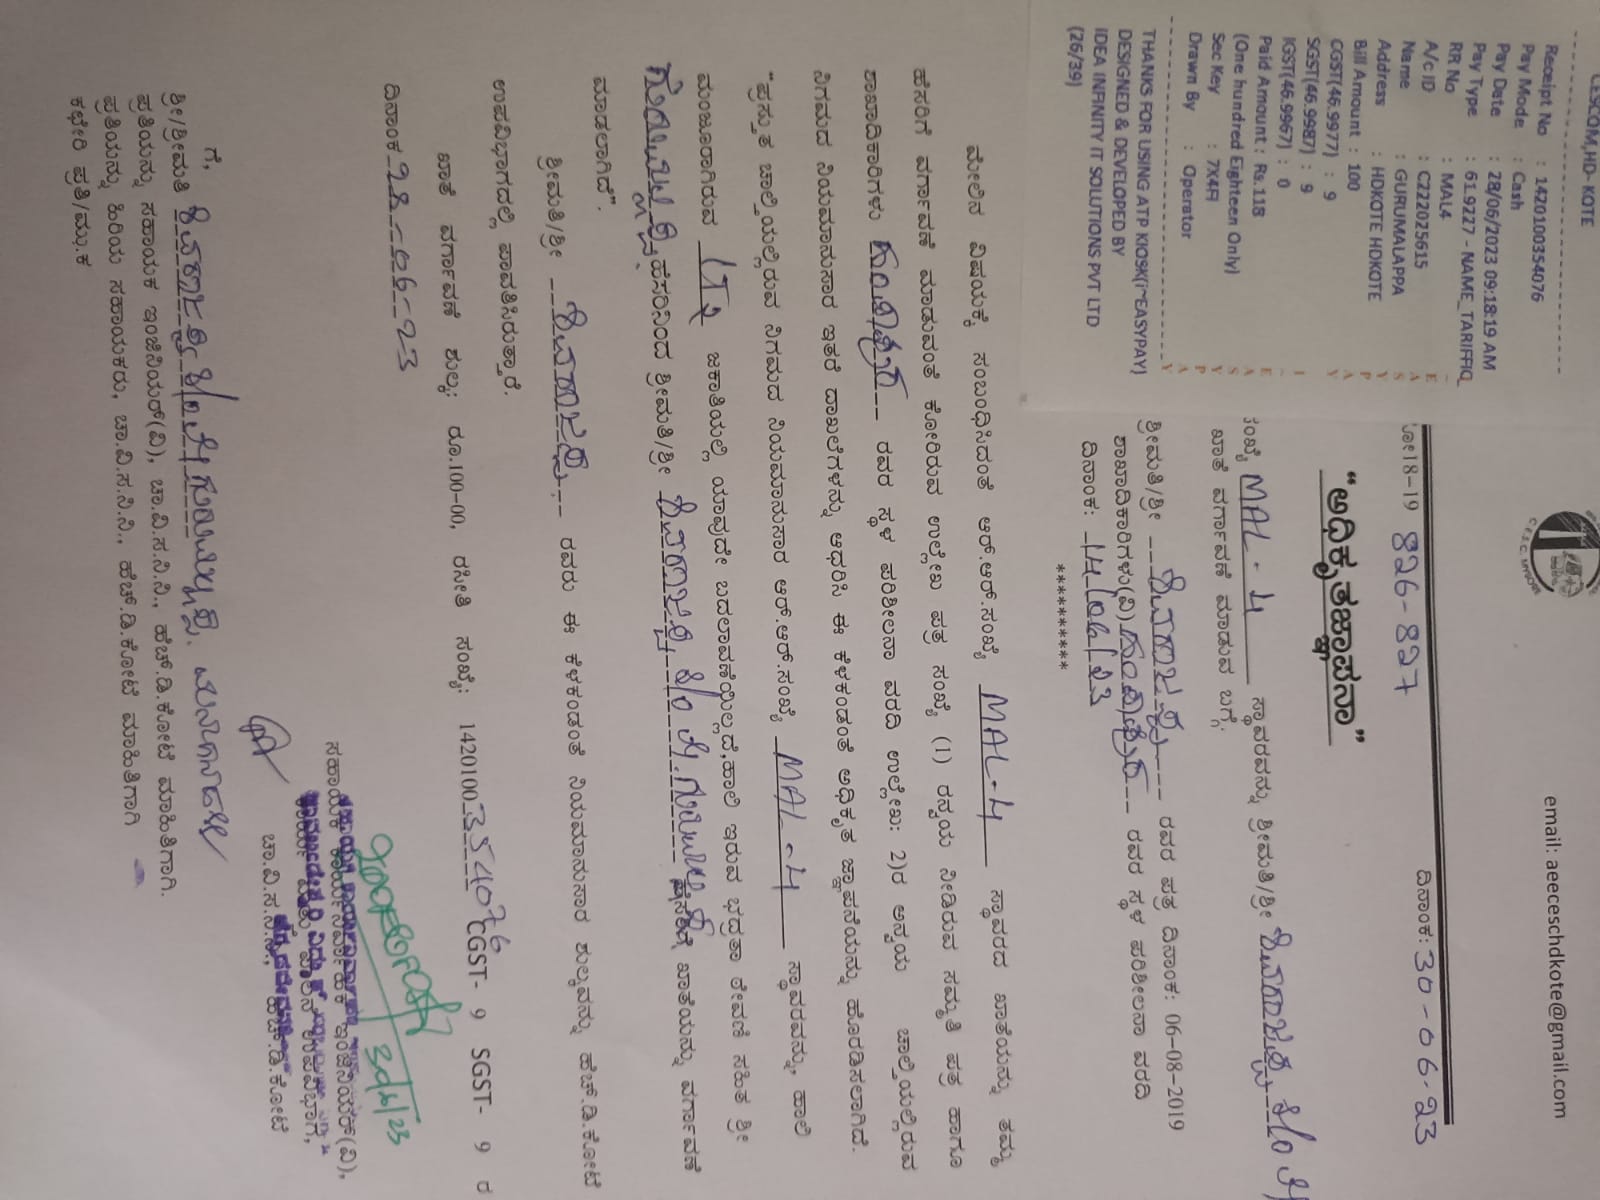 CESCOM,HD- KOTE
Receipt No : 1420100354076
Pay Mode : Cash
Pay Date : 28/06/2023 09:18:19 AM
Pay Type : 61.9227 - NAME_TARIFFIQ_
RR No : MAL4
A/c ID : C222025615
Name : GURUMALAPPA
Address : HDKOTE HDKOTE
Bill Amount : 100
CGST(46.9977) : 9
SGST(46.9987) : 9
IGST(46.9967) : 0
Paid Amount : Rs.118
(One hundred Eighteen Only)
Sec Key : 7X4FI
Drawn By : Operator
THANKS FOR USING ATP KIOSK(i~EASYPAY)
DESIGNED & DEVELOPED BY
IDEA INFINITY IT SOLUTIONS PVT LTD
(26/39)
email: aeeceschdkote@gmail.com
18-19 826-827 ದಿನಾಂಕ: 30-06-23
“ಅಧಿಕೃತಜ್ಞಾಪನಾ”
ಸಂಖ್ಯೆ MAL-4 ಸ್ಥಾವರವನ್ನು ಶ್ರೀಮತಿ/ಶ್ರೀ ಶಿವರಾಜಪ್ಪ S/o
ಖಾತೆ ವರ್ಗಾವಣೆ ಮಾಡುವ ಬಗ್ಗೆ.
ಶ್ರೀಮತಿ/ಶ್ರೀ ಶಿವರಾಜಪ್ಪ ರವರ ಪತ್ರ ದಿನಾಂಕ: 06-08-2019
ಶಾಖಾದಿಕಾರಿಗಳು(ವಿ) ರವರ ಸ್ಥಳ ಪರಿಶೀಲನಾ ವರದಿ
ದಿನಾಂಕ: 14/06/23
*********
ಮೇಲಿನ ವಿಷಯಕ್ಕೆ ಸಂಬಂಧಿಸಿದಂತೆ ಆರ್.ಆರ್.ಸಂಖ್ಯೆ MAL-4 ಸ್ಥಾವರದ ಖಾತೆಯನ್ನು ತಮ್ಮ
ಹೆಸರಿಗೆ ವರ್ಗಾವಣೆ ಮಾಡುವಂತೆ ಕೋರಿರುವ ಉಲ್ಲೇಖ ಪತ್ರ ಸಂಖ್ಯೆ (1) ರನ್ವಯ ನೀಡಿರುವ ಸಮ್ಮತಿ ಪತ್ರ ಹಾಗೂ
ಶಾಖಾದಿಕಾರಿಗಳು ರವರ ಸ್ಥಳ ಪರಿಶೀಲನಾ ವರದಿ ಉಲ್ಲೇಖ: 2)ರ ಅನ್ವಯ ಚಾಲ್ತಿಯಲ್ಲಿರುವ
ನಿಗಮದ ನಿಯಮಾನುಸಾರ ಇತರೆ ದಾಖಲೆಗಳನ್ನು ಆಧರಿಸಿ ಈ ಕೆಳಕಂಡಂತೆ ಅಧಿಕೃತ ಜ್ಞಾಪನೆಯನ್ನು ಹೊರಡಿಸಲಾಗಿದೆ.
“ಪ್ರಸ್ತುತ ಚಾಲ್ತಿಯಲ್ಲಿರುವ ನಿಗಮದ ನಿಯಮಾನುಸಾರ ಆರ್.ಆರ್.ಸಂಖ್ಯೆ MAL-4 ಸ್ಥಾವರವನ್ನು, ಹಾಲಿ
ಮಂಜೂರಾಗಿರುವ ಜಕಾತಿಯಲ್ಲಿ ಯಾವುದೇ ಬದಲಾವಣೆಯಿಲ್ಲದೆ,ಹಾಲಿ ಇರುವ ಭದ್ರತಾ ಠೇವಣಿ ಸಹಿತ ಶ್ರೀ
ಹೆಸರಿನಿಂದ ಶ್ರೀಮತಿ/ಶ್ರೀ ಶಿವರಾಜಪ್ಪ S/o ಹೆಸರಿಗೆ ಖಾತೆಯನ್ನು ವರ್ಗಾವಣೆ
ಮಾಡಲಾಗಿದೆ”.
ಶ್ರೀಮತಿ/ಶ್ರೀ ಶಿವರಾಜಪ್ಪ ರವರು ಈ ಕೆಳಕಂಡಂತೆ ನಿಯಮಾನುಸಾರ ಶುಲ್ಕವನ್ನು ಹೆಚ್.ಡಿ.ಕೋಟೆ
ಉಪವಿಭಾಗದಲ್ಲಿ ಪಾವತಿಸಿರುತ್ತಾರೆ.
ಖಾತೆ ವರ್ಗಾವಣೆ ಶುಲ್ಕ: ರೂ.100-00, ರಸೀತಿ ಸಂಖ್ಯೆ: 1420100354076 CGST- 9 SGST- 9 ರ
ದಿನಾಂಕ 28-06-23
30/6/23
ಸಹಾಯಕ ಕಾರ್ಯನಿರ್ವಾಹಕ ಇಂಜಿನಿಯರ್(ವಿ),
ಉಪವಿಭಾಗ,
ಚಾ.ವಿ.ಸ.ನಿ.ನಿ., ಹೆಚ್.ಡಿ.ಕೋಟೆ
ಗೆ,
ಶ್ರೀ/ಶ್ರೀಮತಿ ಶಿವರಾಜಪ್ಪ S/o
ಪ್ರತಿಯನ್ನು ಸಹಾಯಕ ಇಂಜಿನಿಯರ್(ವಿ), ಚಾ.ವಿ.ಸ.ನಿ.ನಿ., ಹೆಚ್.ಡಿ.ಕೋಟೆ ಮಾಹಿತಿಗಾಗಿ.
ಪ್ರತಿಯನ್ನು ಹಿರಿಯ ಸಹಾಯಕರು, ಚಾ.ವಿ.ಸ.ನಿ.ನಿ., ಹೆಚ್.ಡಿ.ಕೋಟೆ ಮಾಹಿತಿಗಾಗಿ
ಕಛೇರಿ ಪ್ರತಿ/ಮ್ಯು.ಕ